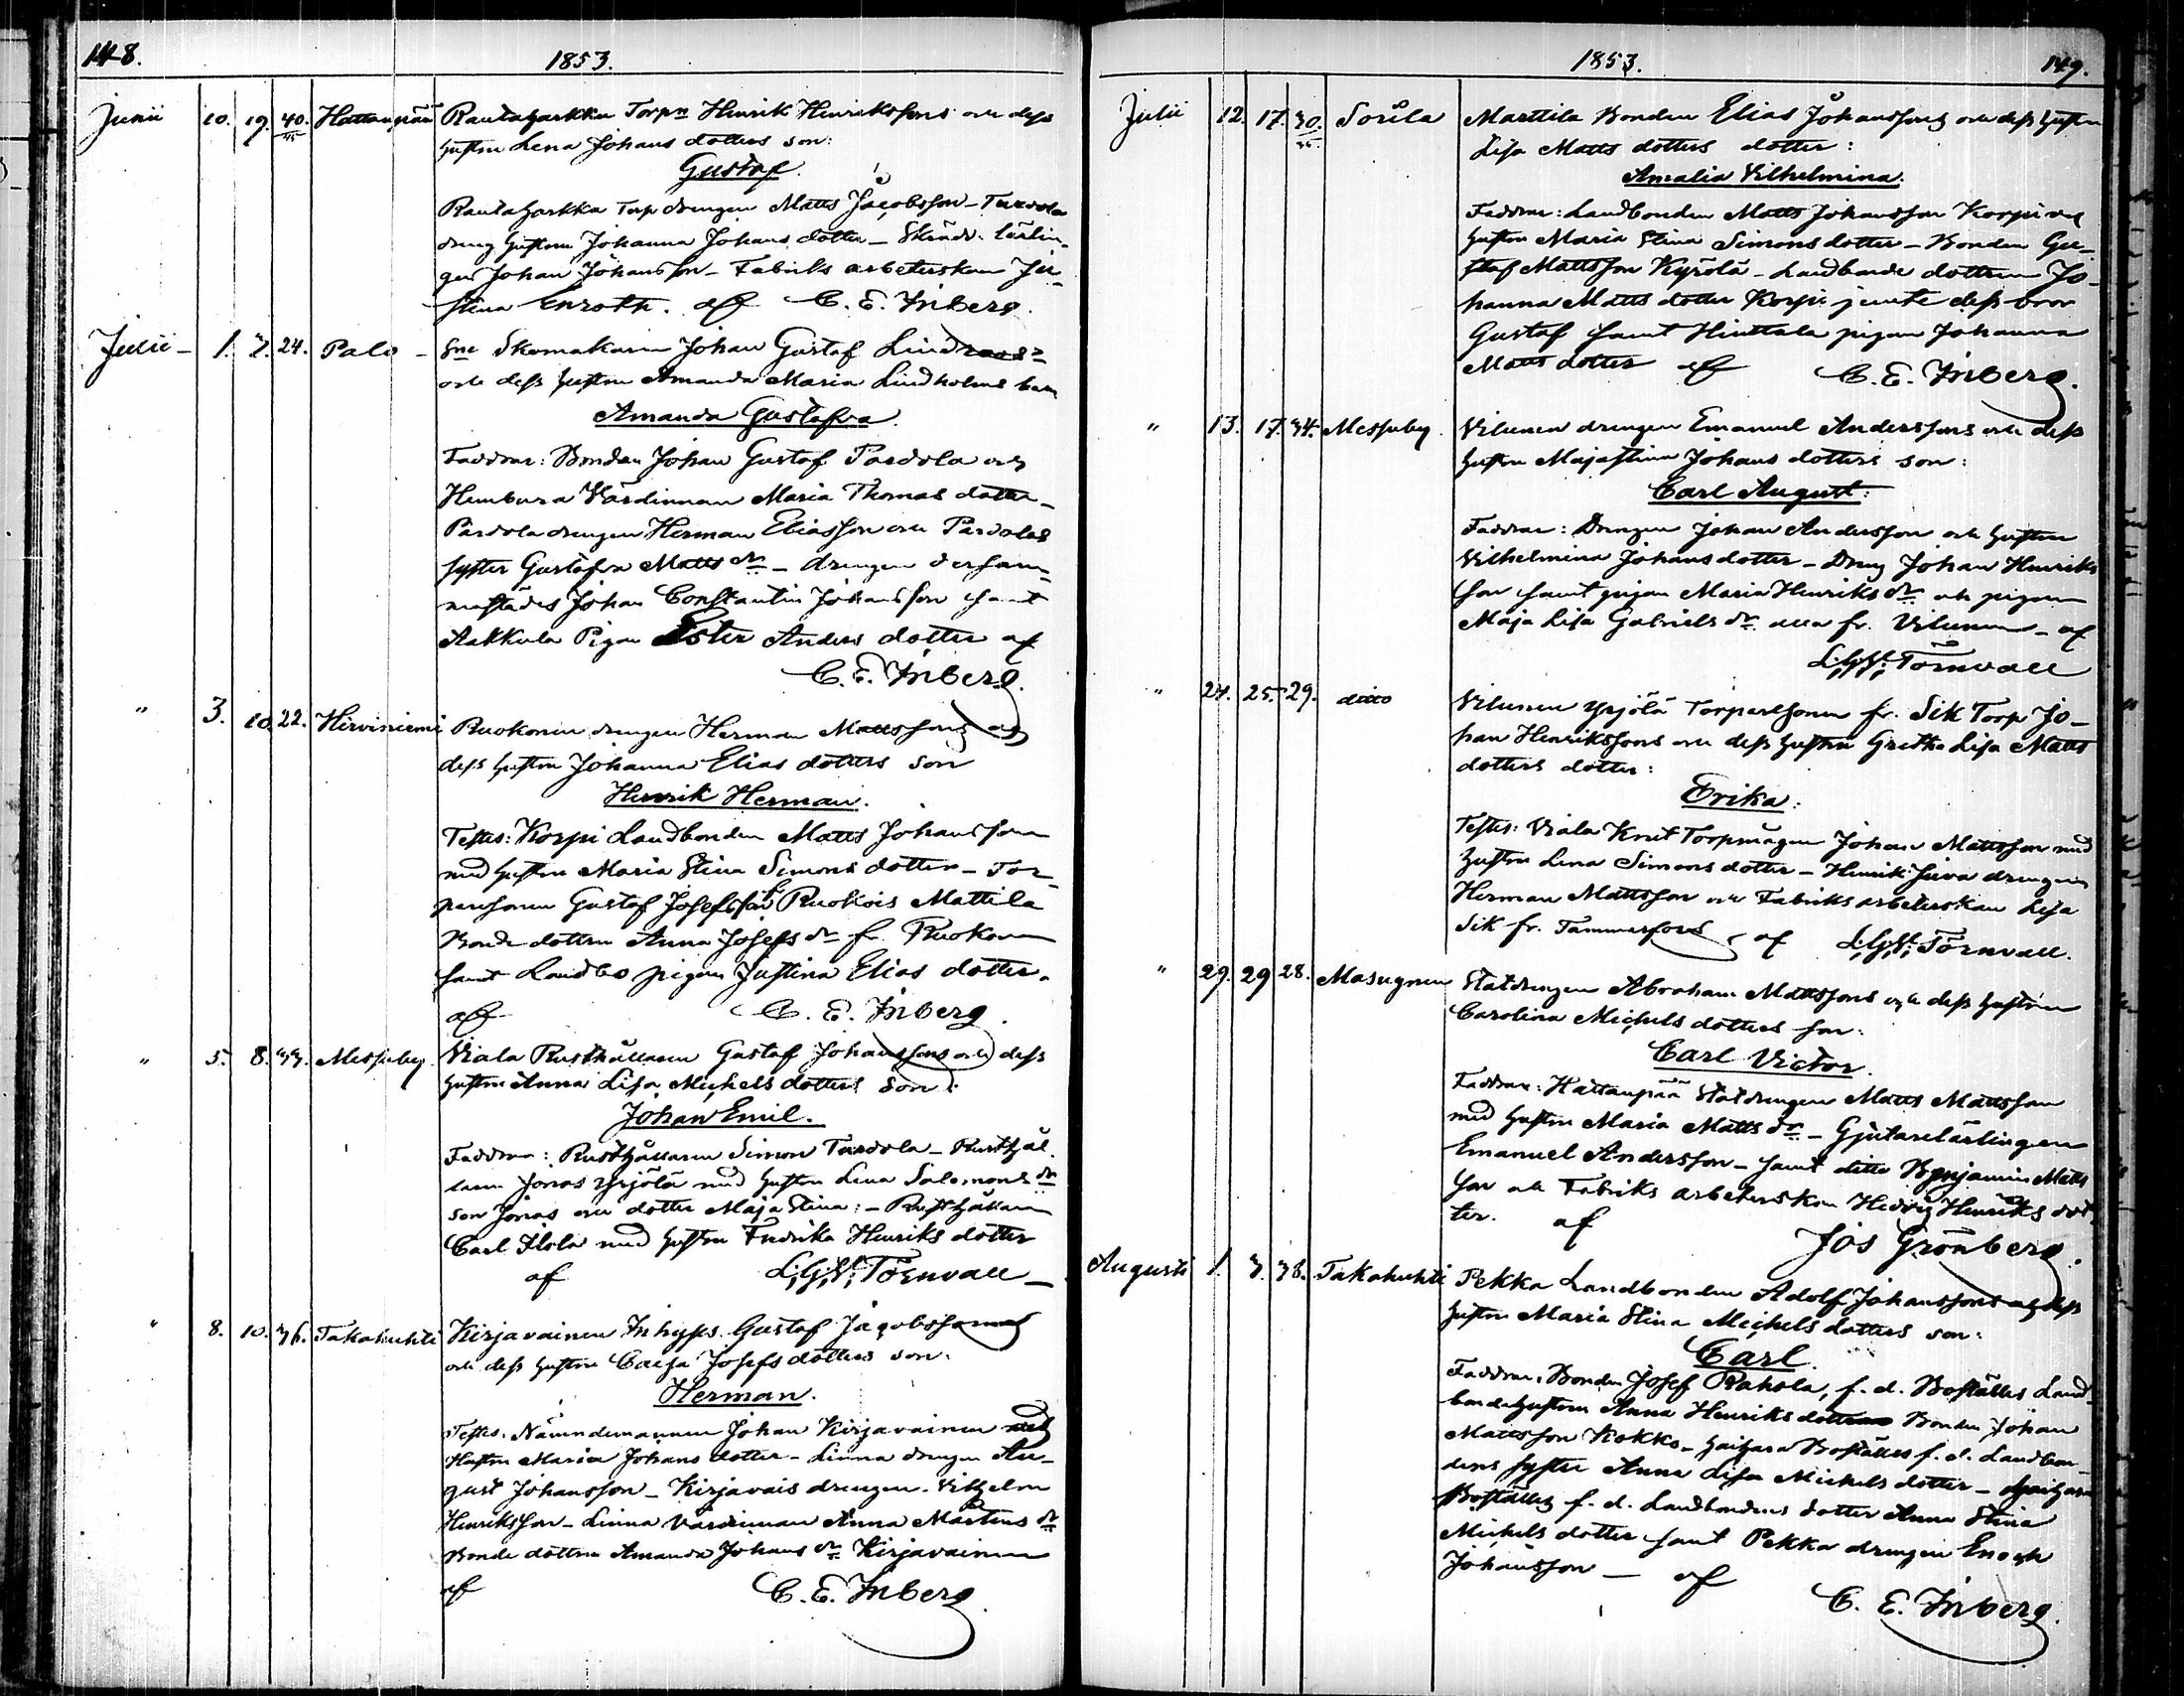 148.
1853.
Junii 10. 19. 40. Hattanpää Rautaharkka Torpn Henrik Henrikssons och dess
hustru Lena Johans dotters son:
Gustaf.
Rautaharkka Torp drengen Matts Jacobsson - Turvola
dreng hustrun Johanna Johans dotter - Skräd. lärlin-
gen Johan Johansson - Fabriks arbeterskan Ju-
stina Enroth. af C. E. Inberg.
Julii - 1. 7. 24. Palo - Skomakaren Johan Gustaf Lindroos
och dess hustru Amanda Maria Lindholms barn
Amanda Gustafva.
Faddrar: Bonden Johan Gustaf Pardola och
Humbura Värdinnan Maria Thomas dotter -
Pärdola drengen Herman Eliasson och Pärdolas
syster Gustafva Matts dr - drengen dersam-
mastädes Johan Constantin Johansson samt
Aakkula Pigan Ester Anders dotter af
C. E. Inberg.
" 3. 10. 22. Hirviniemi Ruokonen drengen Herman Mattssons och
dess hustru Johanna Elias dotters son
Henrik Herman.
Testes: Korpi Landbonden Matts Johansson
med hustru Maria Stina Simons dotter - Tor-
paresonen Gustaf Josefsson fr Ruokois Mattila
Bonde dottren Anna Josefs dr fr. Ruokonen
samt Landbo pigan Justina Elias dotter.
af C. E. Inberg.
" 5. 8. 33. Messuby Viala Rusthållaren Gustaf Johanssons och dess
hustru Anna Lisa Michels dotters son:
Johan Emil.
Faddrar: Rusthållaren Simon Turvola - Rusthål-
laren Jonas Yrjölä med hustru Lena Salomons dr
son Jonas och dotter Maja Stina: - Rusthållaren
Carl Ilola med hustru Fredrika Henriks dotter
af L:G:V: Törnvall -
" 8. 10. 36. Takahuhti Kirjavainen Inhyses Gustaf Jacobssons
och dess hustru Caisa Josefs dotters son.
Herman.
Testes: Nämndemannen Johan Kirjavainen med
Hustru Maria Johans dotter - Linna drengen Au-
gust Johansson - Kirjavais drengen Vilhelm
Henriksson - Linna Värdinnan Anna Mårtens dr
Bonde dottren Amanda Johans dr Kirjavainen
af C. E. Inberg.
1853.
149.
Julii 12. 17. 30. Sorila Marttila Bonden Elias Johanssons och dess hustru
Lisa Matts dotters dotter:
Amalia Vilhelmina.
Faddrar: Landbonden Matts Johansson Korpi och
hustru Maria Stina Simons dotter - Bonden Gu-
staf Mattsson Kyrölä - Landbonde dottren Jo-
hanna Matts dotter Korpi jemte dess bror
Gustaf samt Hinttala pigan Johanna
Matts dotter af C. E. Inberg.
" 13. 17. 34. Messuby Vilunen drengen Emanuel Anderssons och dess
hustru Majastina Johans dotters son:
Carl August:
Faddrar: Drengen Johan Andersson och hustru
Vilhelmina Johansdotter - Dreng Johan Henriks
son samt pigan Maria Henriks dr och pigan
Maja Lisa Gabriels dr alla fr. Vilunen - af
L:G:V: Törnvall
" 24. 25. 29. ditto Vilunen Yrjölä Torparesonen fr. Sik Torp Jo-
han Henrikssons och dess hustru Gretha Lisa Matts
dotters dotter:
Erika:
Testes: Viala Knut Torpmågen Johan Mattsson med
hustru Lena Simons dotter - Henrik Juva drengen
Herman Mattsson och Fabriks arbeterskan Lisa
Sik fr. Tammerfors - af L:G:V: Törnvall.
" 29. 29 28. Masugnen Statdrengen Abraham Mattssons och dess hustru
Carolina Michels dotters son:
Carl Victor.
Faddrar: Hattanpää Statdrengen Matts Mattsson
med hustru Maria Matts dr - Gjutarelärlingen
Emanuel Andersson - samt ditto Benjamin Matts
son och Fabriks arbeterskan Hedvig Henriks dot
ter. af Jos Grönberg.
Augusti 1. 3. 38. Takahuhti Pekka Landbonden Adolf Johanssons och dess
hustru Maria Stina Michels dotters son:
Carl.
Faddrar: Bonden Josef Rahola, f. d. Boställes Land
bondehustrun Anna Henriks dotter Bonden Johan
Mattsson Kokko - Haihara Boställes f. d. Landbon-
dens syster Anna Lisa Michels dotter - Haihara
Boställes f. d. Landbondens dotter Anna Stina
Michels dotter samt Pekka drengen Enoch
Johansson - af C. E. Inberg.